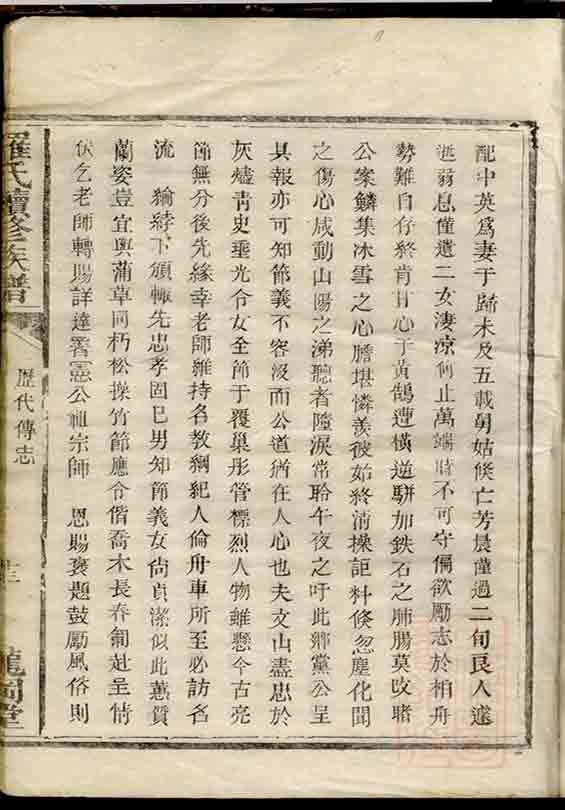 配中英爲妻于歸未及五載舅姑倏亡芳晨僅過二旬良人遽
逝弱息僅遺二女淒凉何止萬端時不可守偏欲勵志於相舟
勢難自存終肯甘心于黃鵠遭橫逆駢加鉄石之肺腸莫改睹
公案鱗集冰雪之心膽堪憐羨彼始終淸操詎料倏忽塵化聞
之傷心咸動山陽之涕聽者墮淚常聆午夜之吁此鄉黨公呈
具報亦可知節義不容沒而公道猶在人心也夫文山盡忠於
灰燼靑史埀光令女全節于覆巢彤管標烈人物雖懸今古亮
節無分後先緣幸老師維持名教綱紀人倫舟車所至必訪名
流 綸綍下頒輙先忠孝固已男知節義女尙貞潔似此蕙質
蘭姿豈宜與蒲草同朽松操竹節應令偕喬木長春匍赴呈情
伏乞老師轉賜詳達督憲公祖宗師 恩賜褒題鼓勵風俗則
羅氏續修族譜
歷代傳志